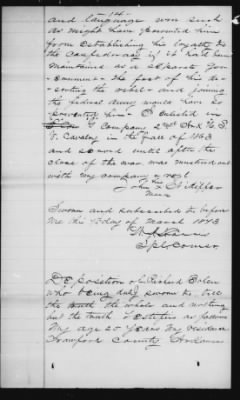 -14-
and language were such
as might have prevented him
from establishing his loyalty to
the Confederacy if it had been
maintained as a separate Gov-
ernment - the fact of his de-
serting the rebels and joining
the federal army would have so
prevented him - I enlisted in
G Company 2nd Ark
Cavalry in the year of 1863
and served until after the
close of the war was mustered out
with my company & regt
John
his
Mark
Sworn and subscribed to before
me this day of March 1873
Spl Comsr
Deposition of Richard
who being duly sworn to tell
the truth the whole and nothing
but the truth testifies as follows
My age 25 years my residence
Crawford County Arkansas